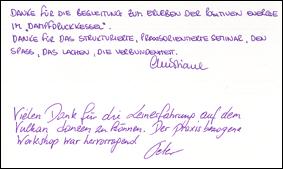 DANKE FÜR DIE BEGLEITUNG ZUM ERLEBEN DER POSITIVEN ENERGIE
IM „DAMPFDRUCKKESSEL".
DANKE FÜR DAS STRUKTURIERTE, PRAXISORIENTIERTE SEMINAR, DEN
SPASS, DAS LACHEN, DIE VERBUNDENHEIT.
Christiane
Vielen Dank für die Lernerfahrung auf dem
Vulkan tanzen zu können. Der praxisbezogene
Workshop war hervorragend
Peter